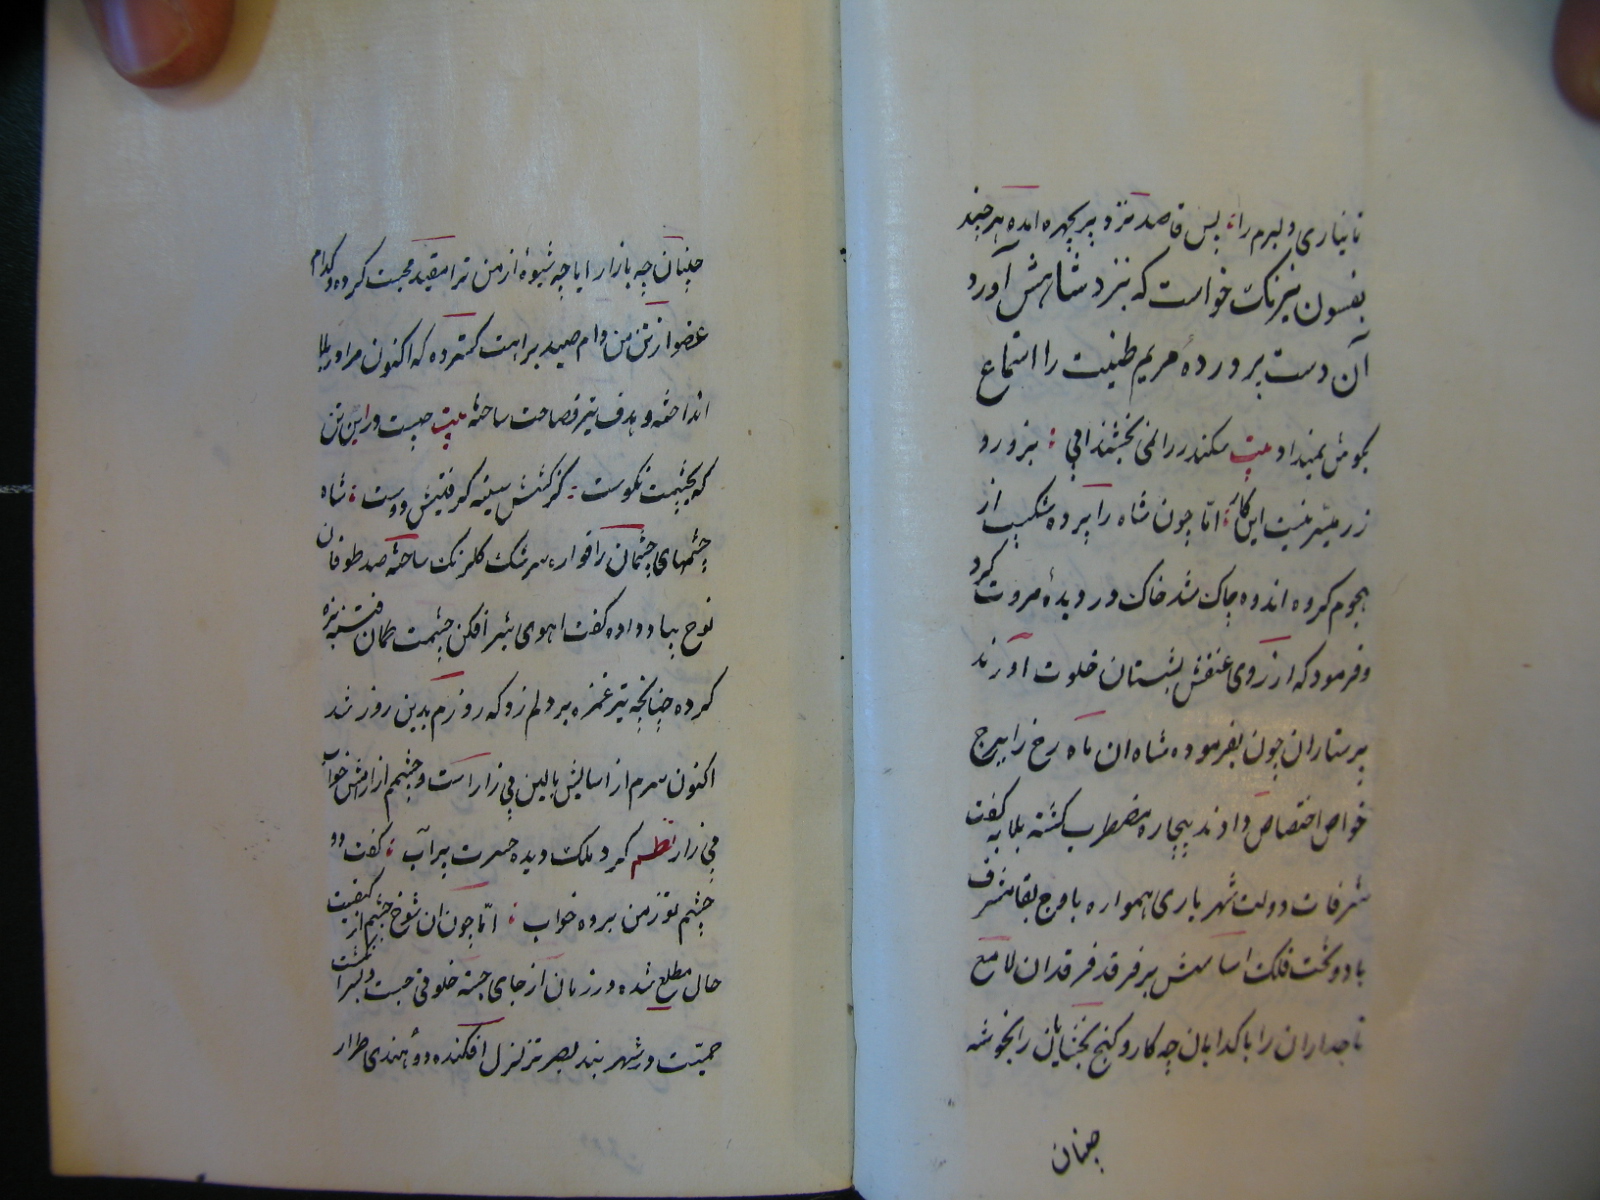 تا نیاری دلبرم را پس قاصد نزد پریچهره امده هرچند
بفسون نیرنک خواست که بنزد شاهش آورد
آن دست پروردهٔ مریم طینت را استماع
بکوش ننهاد بیت سکندر را نمی بخشند آبی بزور و
زر میسر نیست این کار اما چون شاه را پرده شکیب از
هجوم کروه اندوه چاک شد خاک در دیدهٔ مروت کرد
و فرمود که از روی عنفش بشبستان خلوت آورند
پرستاران چون بفرموده شاه ان ماه رخ را ببرج
خواص اختصاص دادند بیچاره مضطرب کشته بلابه کفت
شرفات دولت شهریاری همواره باوج بقا مشرف
باد و تخت فلک اساسش بر فرقد فرقدان لامع
تاجداران را با کدایان چه کار و کنج بخشایان را بخوشه
چنان
چنیان چه بازار ایا چه شیوهٔ از من ترا مقید محبت کرده و کدام
عضو از تن من دام صید براهت کسترده که اکنون مرا در بلا
انداخته و هدف تیر فصاحت ساخته بیت چیست در این تن
که بچشمت نکوست کز کشش سینه کرفتیش دوست شاه
چشمهای چشمان را فواره سرشک کلرنک ساخته صد طوفان
نوح بباد داده کفت اهوی شیر افکن چشمت کمان فتنه بزه
کرده چنانچه تیر غمزه بر دلم زد که روزم بدین روز شد
اکنون سرم از اسایش بالین بی زار است و چشمم از ارامش خواب
بی زار نظم کرد ملک دیده حسرت پرآب کفت دو
چشم تو ز من برده خواب اما چون ان شوخ چشم از کیفیت
حال مطلع شده در زمان از جای جسته خلوتی جست و لبرا نکشت
حمیت در شهر بند بصر تزلزل افکنده دو هندی طرار